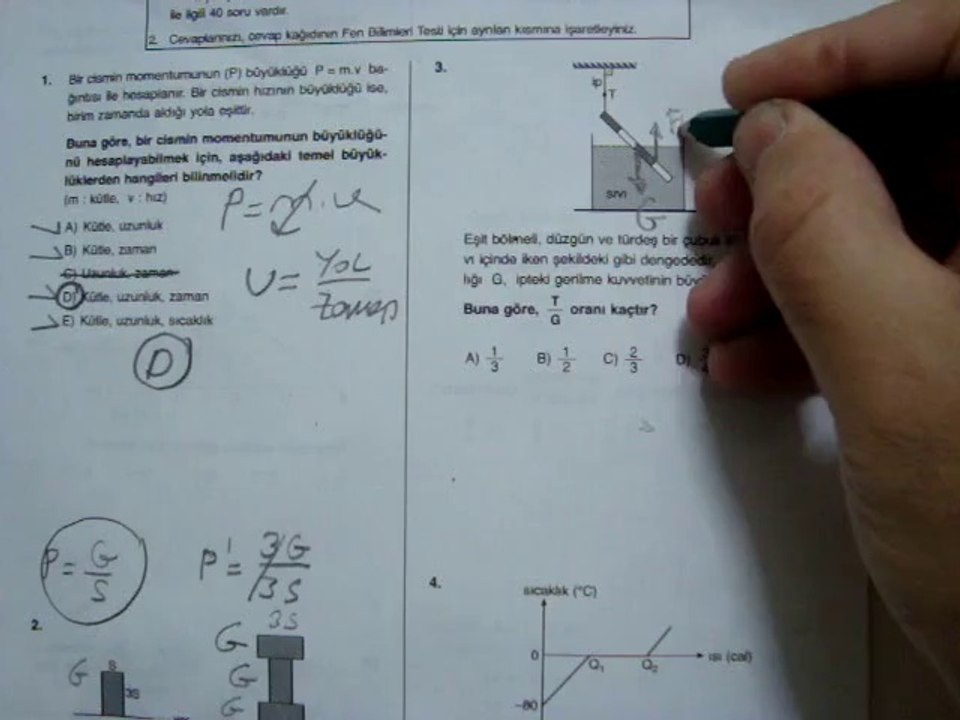 ile ilgili 40 soru vardır.
2. Cevaplarınızı, cevap kağıdının Fen Bilimleri Testi için ayrılan kısmına işaretleyiniz.
1. Bir cismin momentumunun (P) büyüklüğü P = m.v ba-
ğıntısı ile hesaplanır. Bir cismin hızının büyüklüğü ise,
birim zamanda aldığı yola eşittir.
Buna göre, bir cismin momentumunun büyüklüğü-
nü hesaplayabilmek için, aşağıdaki temel büyük-
lüklerden hangileri bilinmelidir?
(m : kütle, v : hız)
A) Kütle, uzunluk
B) Kütle, zaman
C) Uzunluk, zaman
D) Kütle, uzunluk, zaman
E) Kütle, uzunluk, sıcaklık
P = m . v
v = YOL / Zaman
D
P = G / S
P' = 3G / 3S
2.
G
S
3S
3S
G
G
G
3.
ip
T
sıvı
G
Eşit bölmeli, düzgün ve türdeş bir çubuk
vı içinde iken şekildeki gibi dengededir.
lığı G, ipteki gerilme kuvvetinin
Buna göre, T/G oranı kaçtır?
A) 1/3 B) 1/2 C) 2/3 D)
4.
sıcaklık (°C)
0
Q₁
Q₂
ısı (cal)
-80